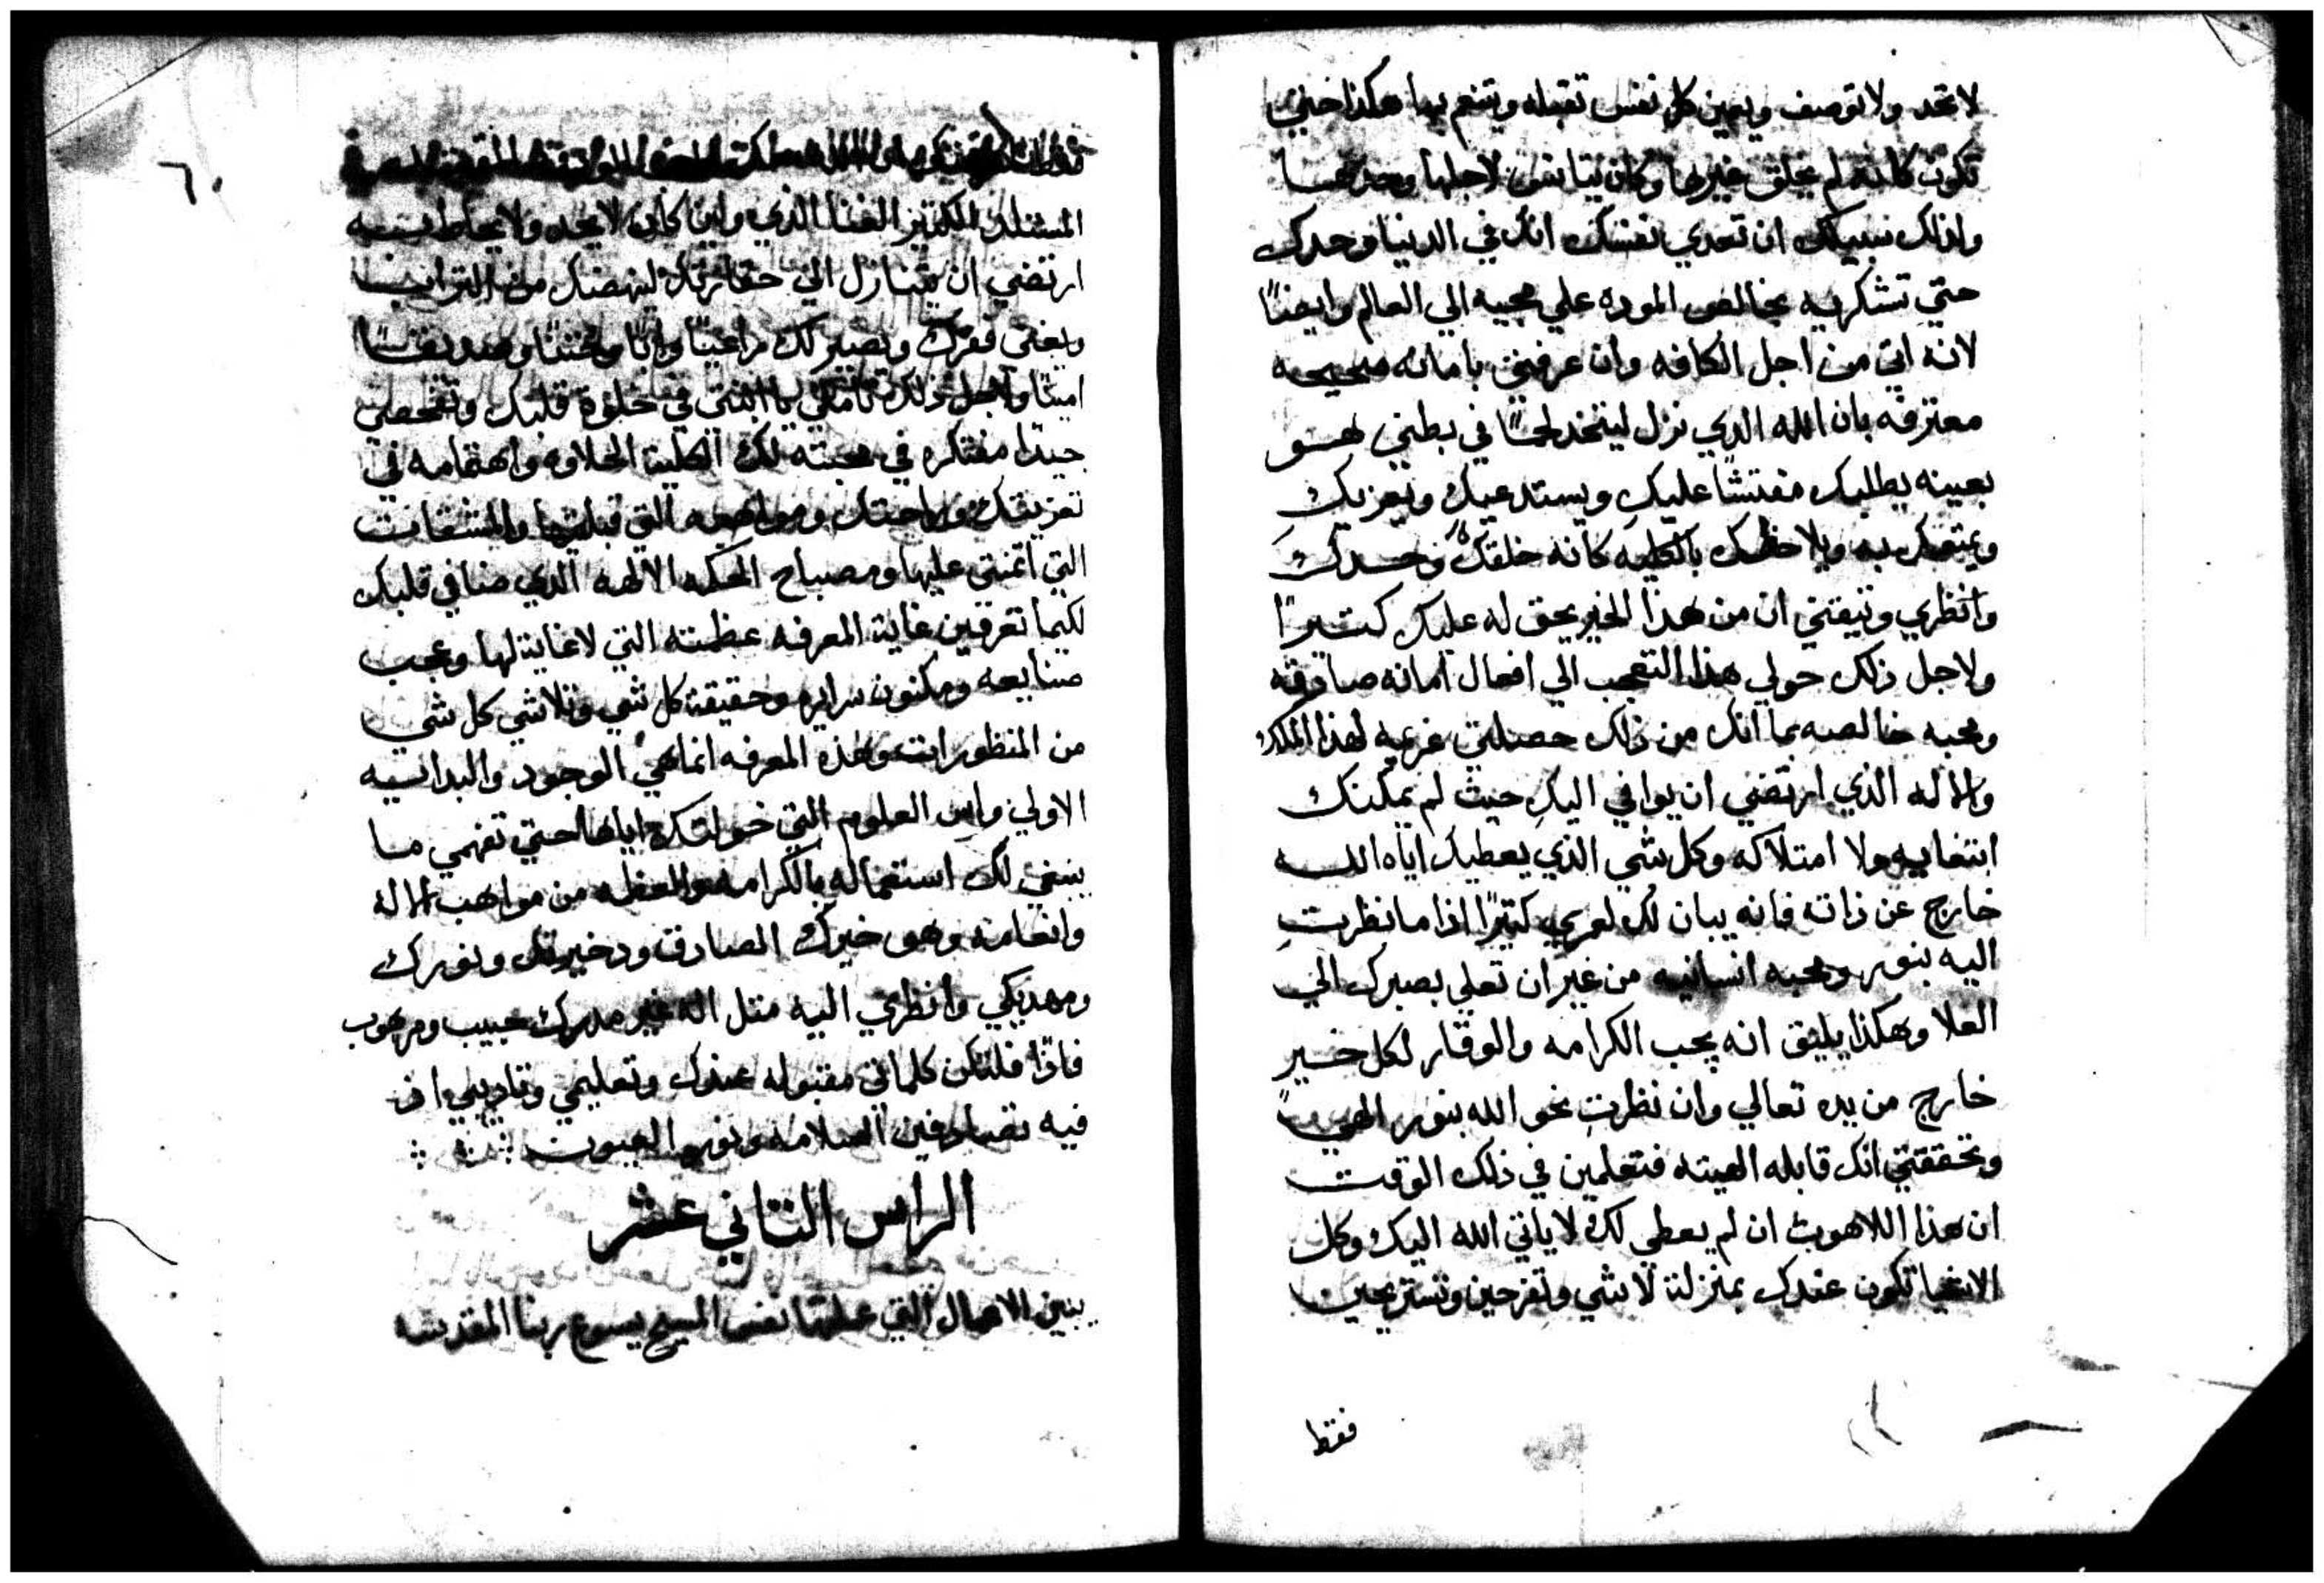 لا تحد ولا توصف ويعين كل نفس تقبله وتنعم بها هكذا حتى
تكون كانه لم يخلق غيرها وكان يتانس لاجلها وحدها
ولذلك سبيلك ان تعدي نفسك انك في الدنيا وحدك
حتي تشكريه بخالص الموده علي مجيه الي العالم وايضاً
لانه اتي من اجل الكافه وان عرفتي بامانه صحيحه
معترفه بان الله الذي نزل ليتخذ لحماً في بطني هو
بعينه يطلبك مفتشاً عليكِ ويستدعيك ويعزيك
ويلاحظك بالكليه كانه خلقك وحدك
وانظري وتيقني ان من هذا الخير يحق له عليك كتيراً
ولاجل ذلك حولي هذا التعجب الي افعال امانه صادقه
ومحبه خالصه بما انك من ذلك حصلتي غريمه لهذا الملك
والاله الذي ارتضي ان يوافي اليكِ حيث لم يمكنك
ابتغايه ولا امتلاكه وكل شي الذي يعطيك اياه الله
خارج عن ذاته فانه يبان لك لعمري كتيراً اذا ما نظرتِ
اليه بنور ومحبه انسانيه من غير ان تعلي بصرك الي
العلا وهكذا يليق انه يجب الكرامه والوقار لكل خير
خارج من يده تعالي وان نظرتِ نحو الله بنور الهي
وتحققتي انك قابله الهيته فتعلمين في ذلك الوقت
ان هذا اللاهوت ان لم يعطي لك لا ياتي الله اليك وكل
الاشيا تكون عندك بمنزلة لا شي وتفرحين وتستريحين
فقط
٦٠
الغنا الذي وان كان لا يحد ولا يحاط به
ارتضي ان يتنازل الي حقارتك لينهضك من التراب
ويغني فقرك ويصير لك راعياً واباً وختناً وصديقاً
اميناً ولاجل ذلك تاملي يا ابنتي في خلوة قلبك وتفحصي
جيداً مفتكره في محبته لك الكلية الحلاوه واهتمامه في
تعزيتك وراحتك ومواهبه التي قبلتيها والمشقات
التي اتمنتي عليها ومصباح الحكمه الالهيه الذي ضا في قلبك
لكيما تعرفين غاية المعرفه عظمته التي لا غاية لها وعجب
صنايعه ومكنون سرايره وحقيقة كل شي وتلاشي كل شي
من المنظورات وهذه المعرفه انما هي الوجود والبدايه
الاولي وراس العلوم التي خولتك اياها حتي تفهمي ما
ينبغي لك استعماله بالكرامه والعظمه من مواهب الاله
وانعامه وهو خيرك الصادق ودخيرتك ونورك
ومهديكي وانظري اليه متل اله غير مدرك حبيب ومرهوب
فاذاً فلتكن كلماتي مقبوله عندك وتعليمي وتاديبي اذ
فيه تصادفين السلامه ونور العيون
الراس التاني عشر
يبين الاعمال التي عملتها نفس المسيح يسوع ربنا المقدسه